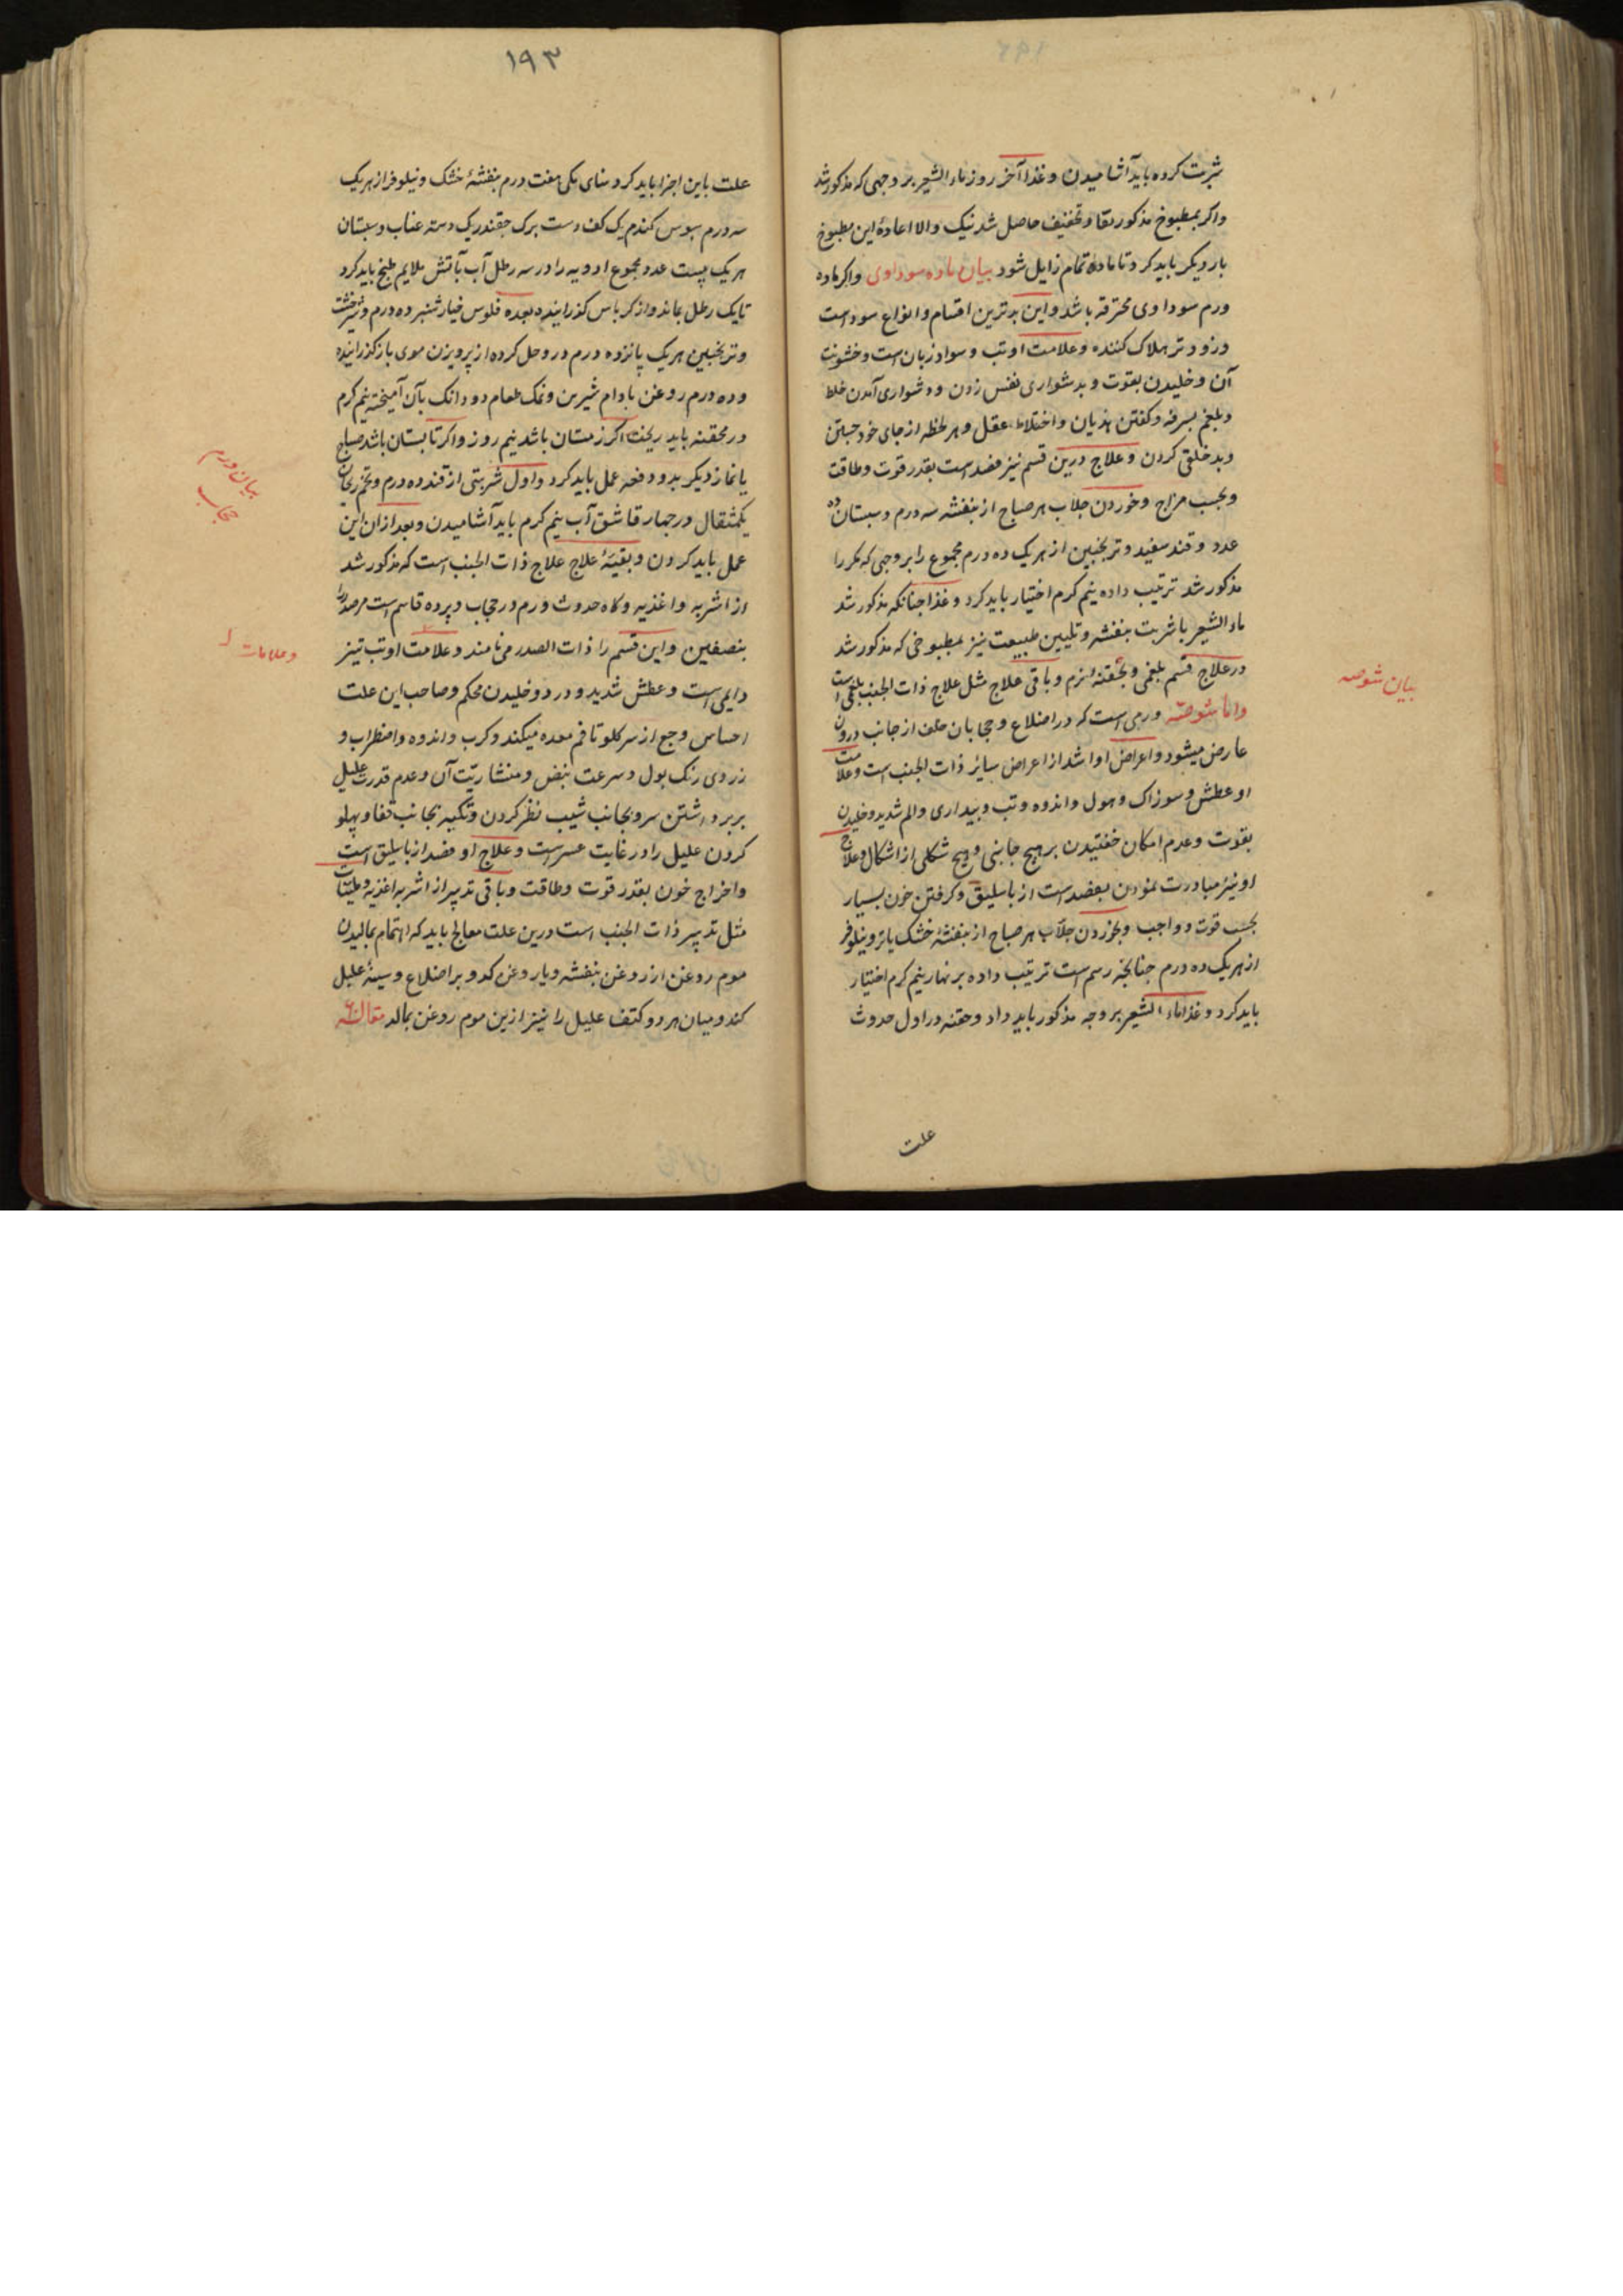 شربت کرده باید آشامیدن و غذا آخر روز ماء الشعیر بر وجهی که مذکور شد
واکر بمطبوخ مذکور نقا و تخفیف حاصل شد نیک والا اعادهٔ این مطبوخ
بار دیکر باید کرد تا ماده تمام زایل شود بیان ماده سوداوی واکر ماده
ورم سوداوی محترقه باشد و این بدترین اقسام و انواع سوداست
و زودتر هلاک کننده و علامت او تب و سواد زبان است و خشونت
آن و خلیدن بقوت و بدشواری نفس زدن و دشواری آمدن خلط
و بلغم بسرفه و کفتن هذیان و اختلاط عقل و هر لحظه از جای خود جستن
و بدخلقی کردن و علاج درین قسم نیز فصد است بقدر قوت و طاقت
و بحسب مزاج و خوردن جلاب هر صباح از بنفشه سه درم و سبستان ده
عدد و قند سفید و ترنجبین از هر یک ده درم مجموع را بر وجهی که مکررا
مذکور شد ترتیب داده نیم کرم اختیار باید کرد و غذا چنانکه مذکور شد
ماء الشعیر با شربت بنفشه و تلیین طبیعت نیز بمطبوخی که مذکور شد
در علاج قسم بلغمی و بحقنه لزم و باقی علاج مثل علاج ذات الجنب بلغمی است
واما شوصه ورمی است که در اضلاع و حجابان خلف از جانب درون
عارض میشود و اعراض او اشد از اعراض سایر ذات الجنب است و علامت
او عطش و سوزاک و هول و اندوه و تب و بیداری و الم شدید و خلیدن
بقوت و عدم امکان خفتیدن بر هیچ جانبی و هیچ شکلی از اشکال و علاج
او نیز مبادرت نمودن بفصد است از باسلیق و کرفتن خون بسیار
بحسب قوت و واجب و بخوردن جلاب هر صباح از بنفشهٔ خشک یا تر و نیلوفر
از هر یک ده درم چنانچه رسم است ترتیب داده بر نهار نیم کرم اختیار
باید کرد و غذا ماء الشعیر بر وجه مذکور باید داد و حقنه در اول حدوث
علت
بیان شوصه
۱۹۳
علت باین اجزا باید کرد سنای مکی هفت درم بنفشهٔ خشک و نیلوفر از هر یک
سه درم سبوس کندم یک کف دست برک چقندر یک دسته عناب و سبستان
هر یک بیست عدد مجموع ادویه را در سه رطل آب بآتش ملایم طبخ باید کرد
تا یک رطل بماند و از کرباس کذرانیده بعده فلوس خیارشنبر ده درم و شیرخشت
و ترنجبین هر یک پانزده درم در و حل کرده از پرویزن موی باز کذرانیده
و ده درم روغن بادام شیرین و نمک طعام دو دانک بآن آمیخته نیم کرم
در محقنه باید ریخت اکر زمستان باشد نیم روز واکر تابستان باشد صباح
یا نماز دیکر بدو دفعه عمل باید کرد و اول شربتی از قند ده درم و تخم ریحان
یکمثقال در چهار قاشق آب نیم کرم باید آشامیدن و بعد ازان این
عمل باید کردن و بقیهٔ علاج علاج ذات الجنب است که مذکور شد
از اشربه و اغذیه و کاه حدوث ورم در حجاب و پرده قاسم است مر صدر را
بنصفین و این قسم را ذات الصدر می نامند و علامت او تب تیز
دایمی است و عطش شدید و درد و خلیدن محکم و صاحب این علت
احساس وجع از سر کلو تا فم معده میکند و کرب و اندوه و اضطراب و
زردی رنک بول و سرعت نبض و منشاریت آن و عدم قدرت علیل
بر برداشتن سر و بجانب شیب نظر کردن و تکیه بجانب قفا و پهلو
کردن علیل را در غایت عسر است و علاج او فصد از باسلیق است
و اخراج خون بقدر قوت و طاقت و باقی تدبیر از اشربه اغذیه و ملینات
مثل تدبیر ذات الجنب است درین علت معالج باید که اهتمام بمالیدن
موم روغن از روغن بنفشه و یا روغن کدو بر اضلاع و سینهٔ علیل
کند و میان هر دو کتف علیل را نیز ازین موم روغن بمالد مقاله
بیان ورم
حجاب
و علامات